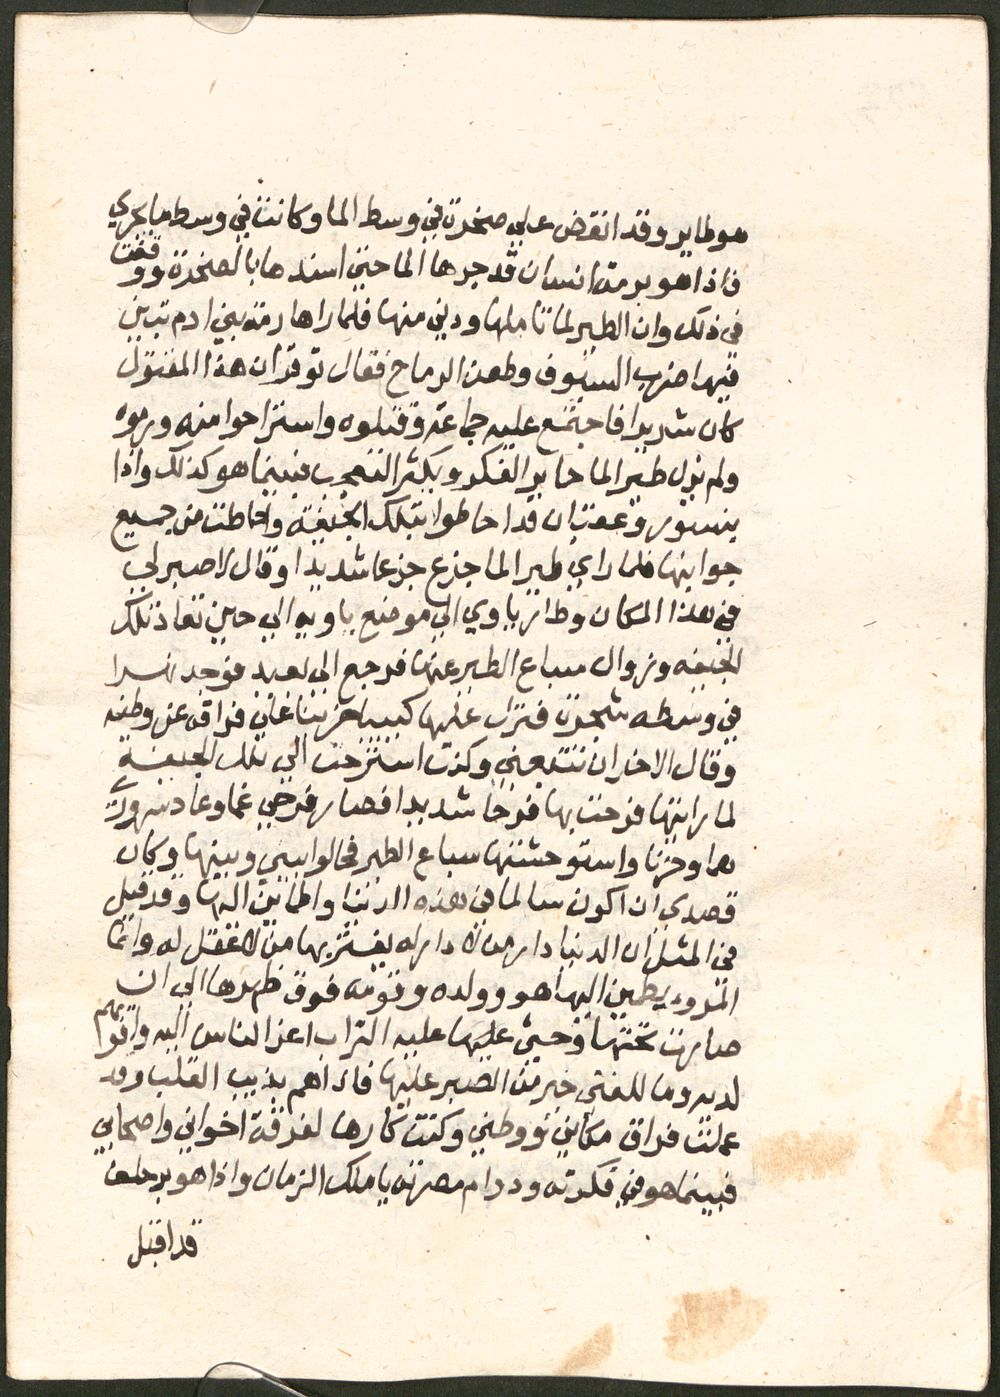 هو طاير وقد انقض علي صخرة في وسط الما وكانت في وسط ما يجري
فاذا هو برمة انسان قد جرها الما حتي اسندها بالصخرة ووقفت
في ذلك وان الطير لما تاملها ودني منها فلما راها رمة بني ادم تبين
فيها ضرب السيوف وطعن الرماح فقال توقر ان هذا المقتول
كان شديدا فاجتمع عليه جماعة وقتلوه واستراحوا منه ورموه
ولم يزل طير الما حاير الفكر ويكثر التعجب فبينما هو كذلك واذا
بنسور وعقبان قد احاطوا بتلك الجيفة واحاطت من جميع
جوانبها فلما راي طير الما جزع جزعا شديدا وقال لا صبر لي
في هذا المكان وطار ياوي الي موضع ياويه الي حين نفاذ تلك
الجيفه وزوال سباع الطير عنها فرجع الي بعيد فوجد نهرا
في وسطه شجرة فنزل عليها كييبا حزينا علي فراقه عن وطنه
وقال الاحزان تتبعني وكنت استرحت الي تلك الجيفة
لما رايتها فرحت بها فرحا شديدا فصار فرحي غما وعاد سروري
هما وحزنا واستوحشتها سباع الطير فحالوا بيني وبينها وكان
قصدي ان اكون سالما في هذه الدنيا واطماين اليها وقد قيل
في المثل ان الدنيا دار من لا دار له يغتر بها من لا عقل له وانما
المرو يطمين اليها هو وولده وقومه فوق ظهرها الي ان
صارت تحتها وحثي عليها عليه التراب اعز الناس اليه واقواهم
لديه وما للفتي خير من الصبر عليها فان الهم يذيب القلب وقد
عملت فراق مكاني ووطني وكنت كارها لفرقة اخواني واصحابي
فبينما هو في فكرته ودوام مصرته يا ملك الزمان واذا هو برحلف
قد اقبل